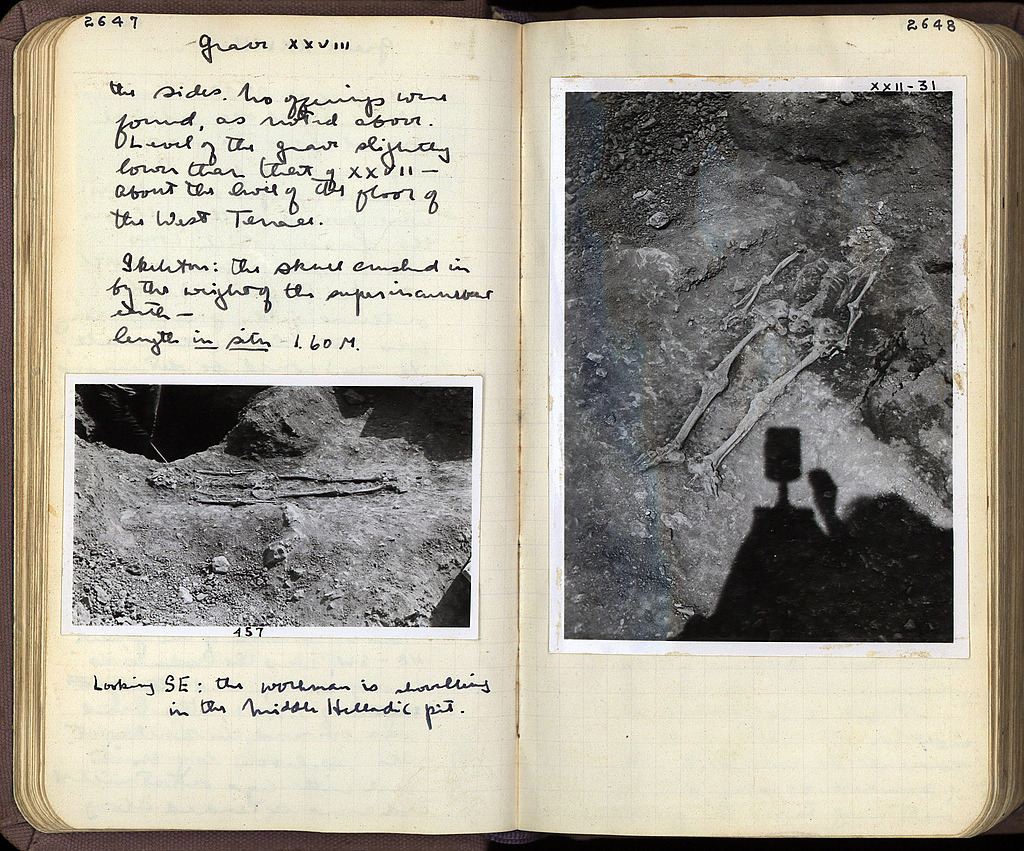 2647
Grave XXVIII
the sides. No offerings were
found, as noted above.
Level of the grave slightly
lower than that of XXVII —
about the level of the floor of
the West Terrace.
Skeleton: the skull crushed in
by the weight of the superincumbent
earth —
length in situ - 1.60 M.
457
Looking SE: the workman is shovelling
in the Middle Helladic pit.
2648
XXII-31